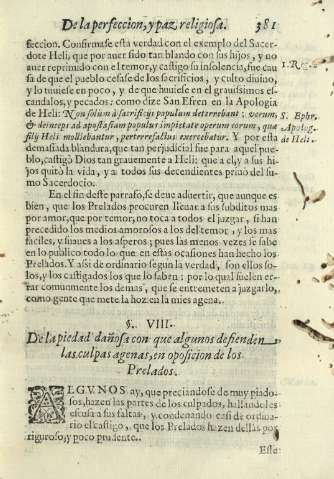 De la perfeccion, y paz religiosa. 381
feccion. Confirmase està verdad con el exemplo del Sacer-
dote Heli, que por auer sido tan blando con sus hijos, y no
auer reprimido con el temor, y castigo su insolencia, fue cau
sa de que el pueblo cesase de los sacrificios, y culto diuino,
y lo tuuiese en poco, y de que huuiese en el grauisimos es-
candalos, y pecados: como dize San Efren en la Apologia
de Heli: Non solùm à sacrificijs populum deterrebant: verum,
& deinceps ad apostasiam populum impietate operum eorum, que
filij Heli moliebantur, perterrefactus exercebatur. Y por esta
demasiada blandura, que tan perjudicial fue para aquel pue-
blo, castigò Dios tan grauemente a Heli: que a el, y a sus hi-
jos quitò la vida, y a todos sus decendientes priuò del su
mo Sacerdocio.
En el fin deste parrafo, se deue aduertir, que aunque es
bien, que los Prelados procuren lleuar a sus subditos mas
por amor, que por temor, no toca a todos el juzgar, si han
precedido los medios amorosos a los del temor, y los mas
faciles, y suaues a los asperos; pues las menos vezes se sabe
en lo publico todo lo que en estas ocasiones han hecho los
Prelados. Y asi de ordinario segun la verdad, son ellos so-
los, y los castigados los que lo saben: por lo qual suelen er-
rar comunmente los demas, que se entremeten a juzgarlo,
como gente que mete la hoz en la mies agena.
1. Reg.
S. Ephr.
Apolog.
de Heli.
§. VIII.
De la piedad dañosa con que algunos defienden
las culpas agenas, en oposicion de los
Prelados.
ALGVNOS ay, que preciandose de muy piado-
sos, hazen las partes de los culpados, hallandoles
escusa a sus faltas, y condenando casi de ordina-
rio el castigo, que los Prelados hazen dellas por
riguroso, y poco prudente.
Este